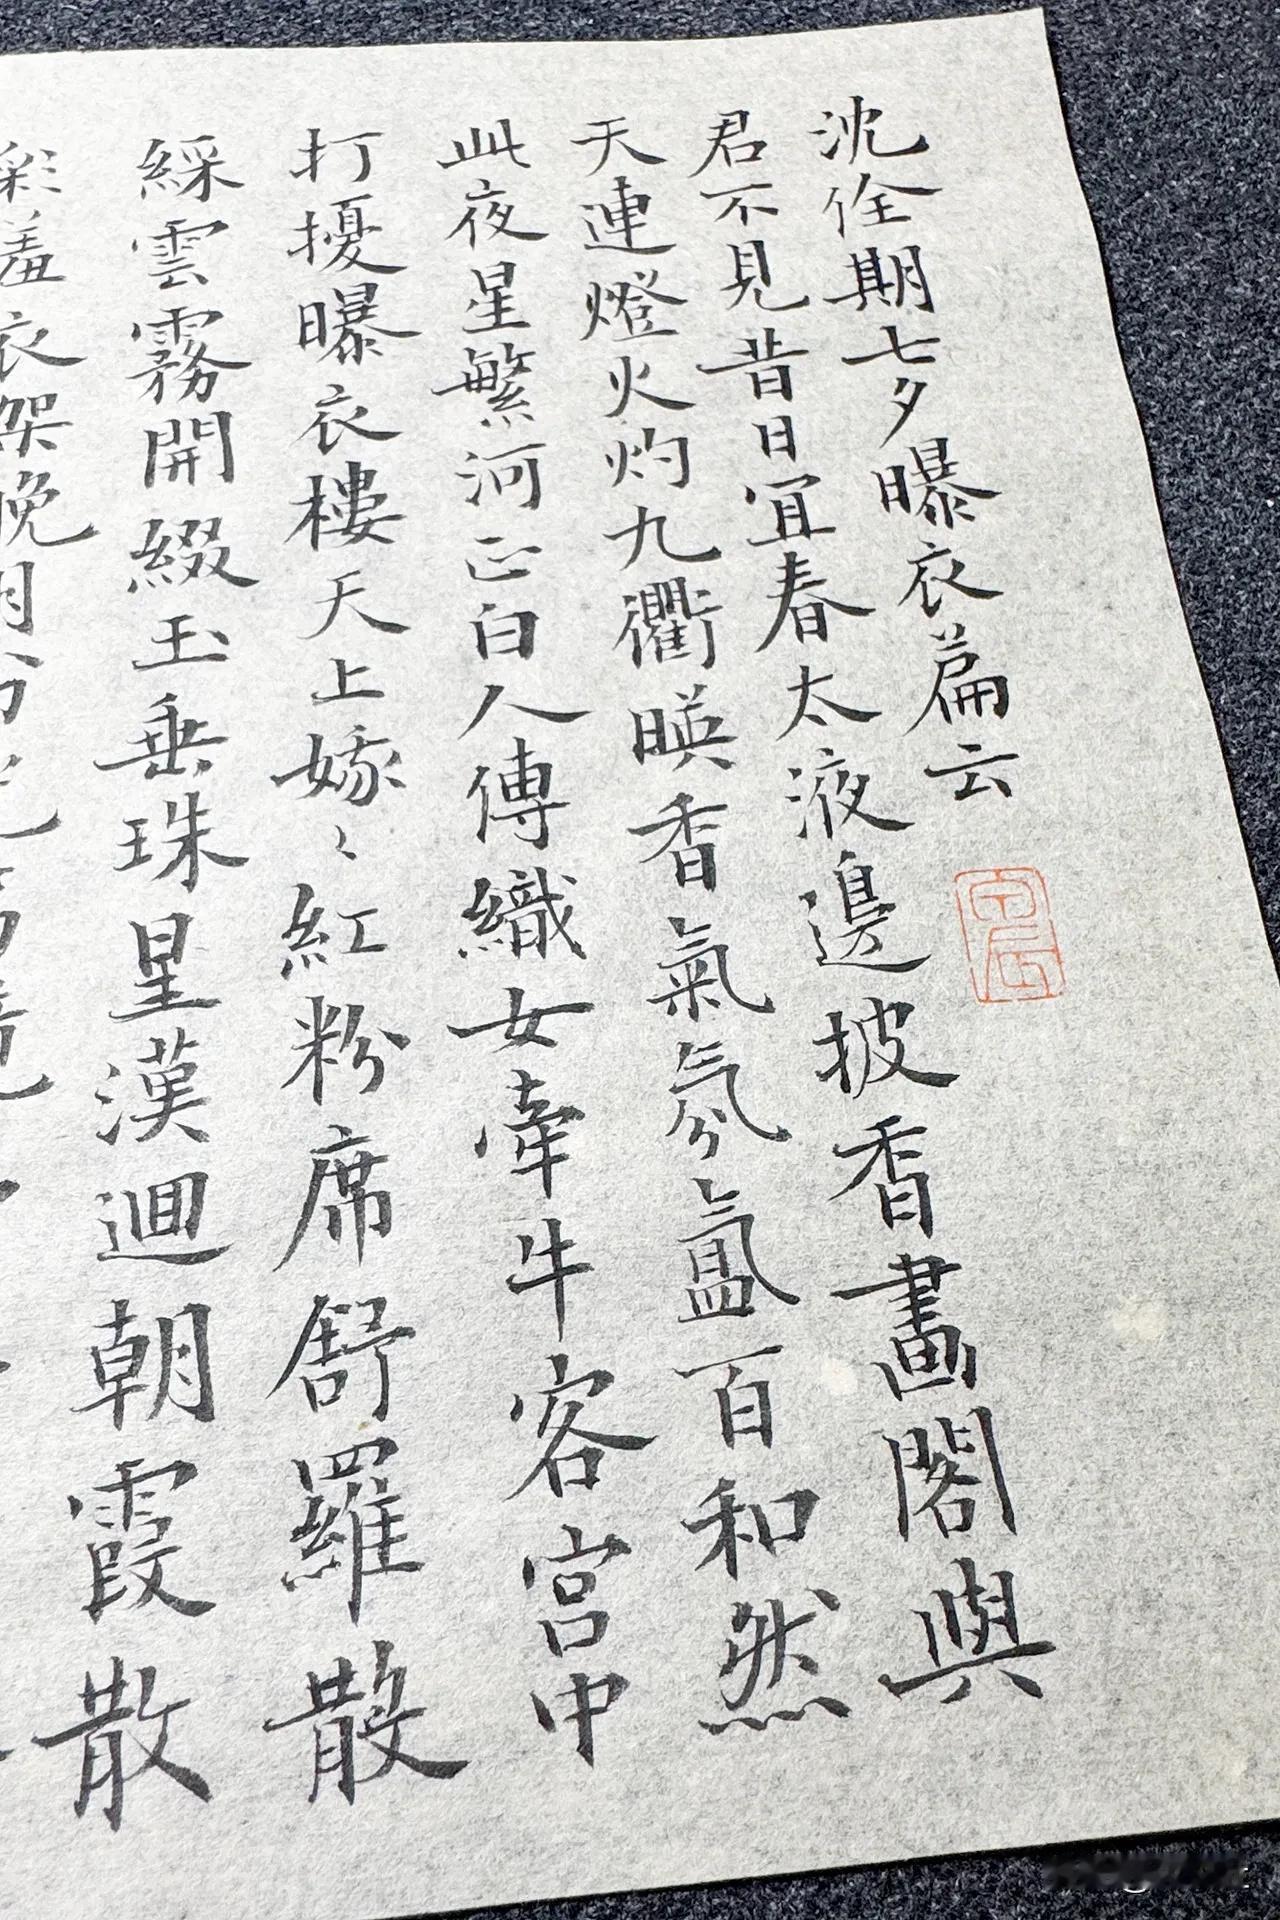 沈佺期七夕曝衣篇云
君不見昔日冝春太液邊披香畫閣與
天連燈火灼九衢暎香氣氛氳百和然
此夜星繁河正白人傳織女牽牛客宮中
打擾曝衣樓天上娥〻紅粉席舒羅散
綵雲霧開綴玉垂珠星漢迴朝霞散
彩羞衣架晚月分光